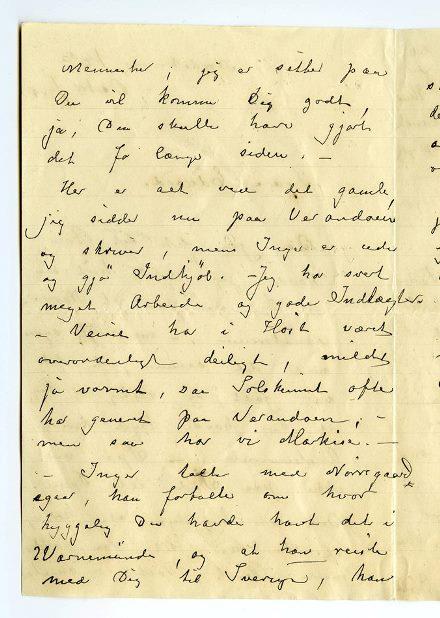 Mennesker; jeg er sikker paa
Du vil komme Dig godt,
ja, Du skulle have gjort
det for længe siden. –
Her er alt ved det gamle,
jeg sidder nu paa Verandaen
og skriver, mens Inger er ude
og gjør Indkjøb. – Jeg har svært
meget Arbeide og gode Indtægter.
– Veiret har i Høst været
overordentligt deiligt, mildt
ja varmt, saa Solskinnet ofte
har generet paa Verandaen; –
men saa har vi Markise. –
– Inger talte med Nørregaard
igaar, han fortalte om hvor
hyggelig Du havde havt det i
Warnemünde, og at han reiste
med Dig til Sverige, han